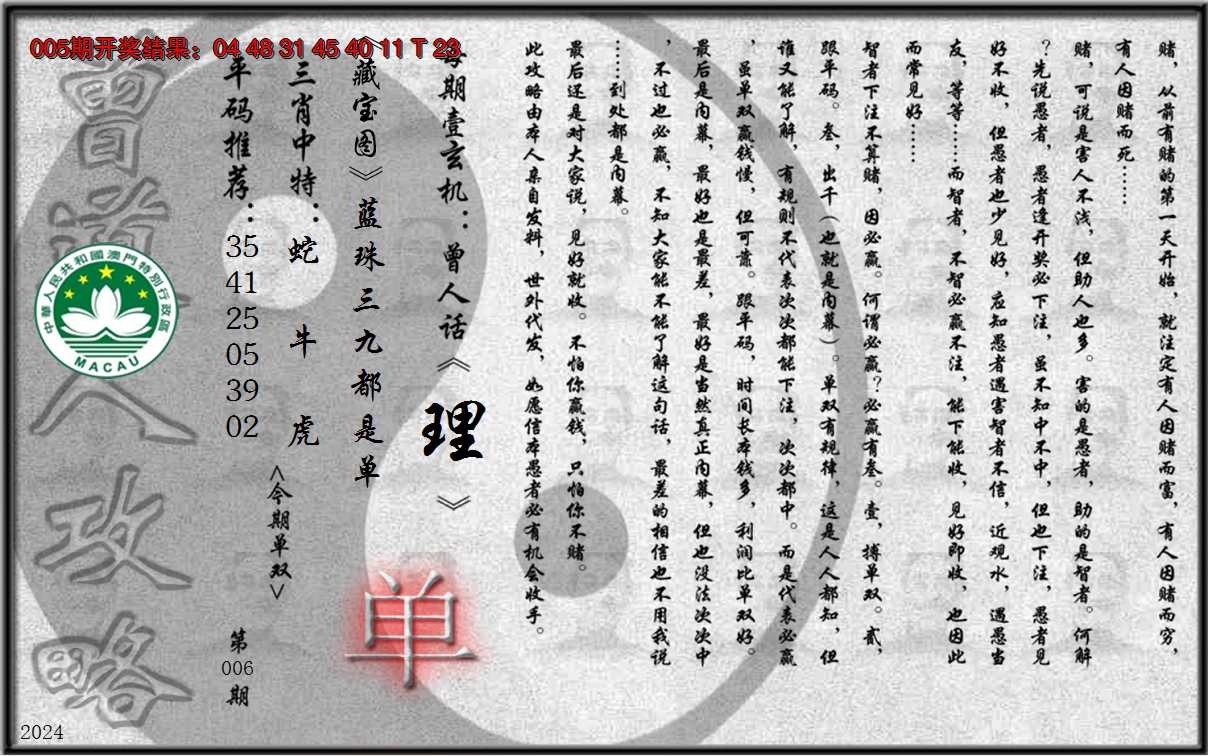 005期开奖结果：04 48 31 45 40 11 T 23
赌，从前有赌的第一天开始，就注定有人因赌而富，有人因赌而穷，
有人因赌而死……
赌，可说是害人不浅，但助人也多。害的是愚者，助的是智者。何解
？先说愚者，愚者逢开奖必下注，虽不知中不中，但也下注，愚者见
好不收，但愚者也少见好，应知愚者遇害智者不信，近观水，遇愚当
友，等等……而智者，不智必赢不注，能下能收，见好即收，也因此
而常见好……
智者下注不算赌，因必赢。何谓必赢？必赢有叁。壹，搏单双。贰，
跟平码。叁，出千（也就是内幕）。单双有规律，这是人人都知，但
谁又能了解，有规则不代表次次都能下注，次次都中。而是代表必赢
，虽单双赢钱慢，但可靠。跟平码，时间长本钱多，利润比单双好。
最后是内幕，最好也是最差，最好是当然真正内幕，但也没法次次中
，不过也必赢，不知大家能不能了解这句话，最差的相信也不用我说
……到处都是内幕。
最后还是对大家说，见好就收。不怕你赢钱，只怕你不赌。
此攻略由本人亲自发料，世外代发，如愿信本愚者必有机会收手。
每期壹玄机：曾人话《理》
《藏宝图》蓝珠三九都是单
单
三肖中特：蛇 牛 虎
<今期单双>
平码推荐：35 41 25 05 39 02
第006期
曾道人攻略
中華人民共和國澳門特別行政區
MACAU
2024